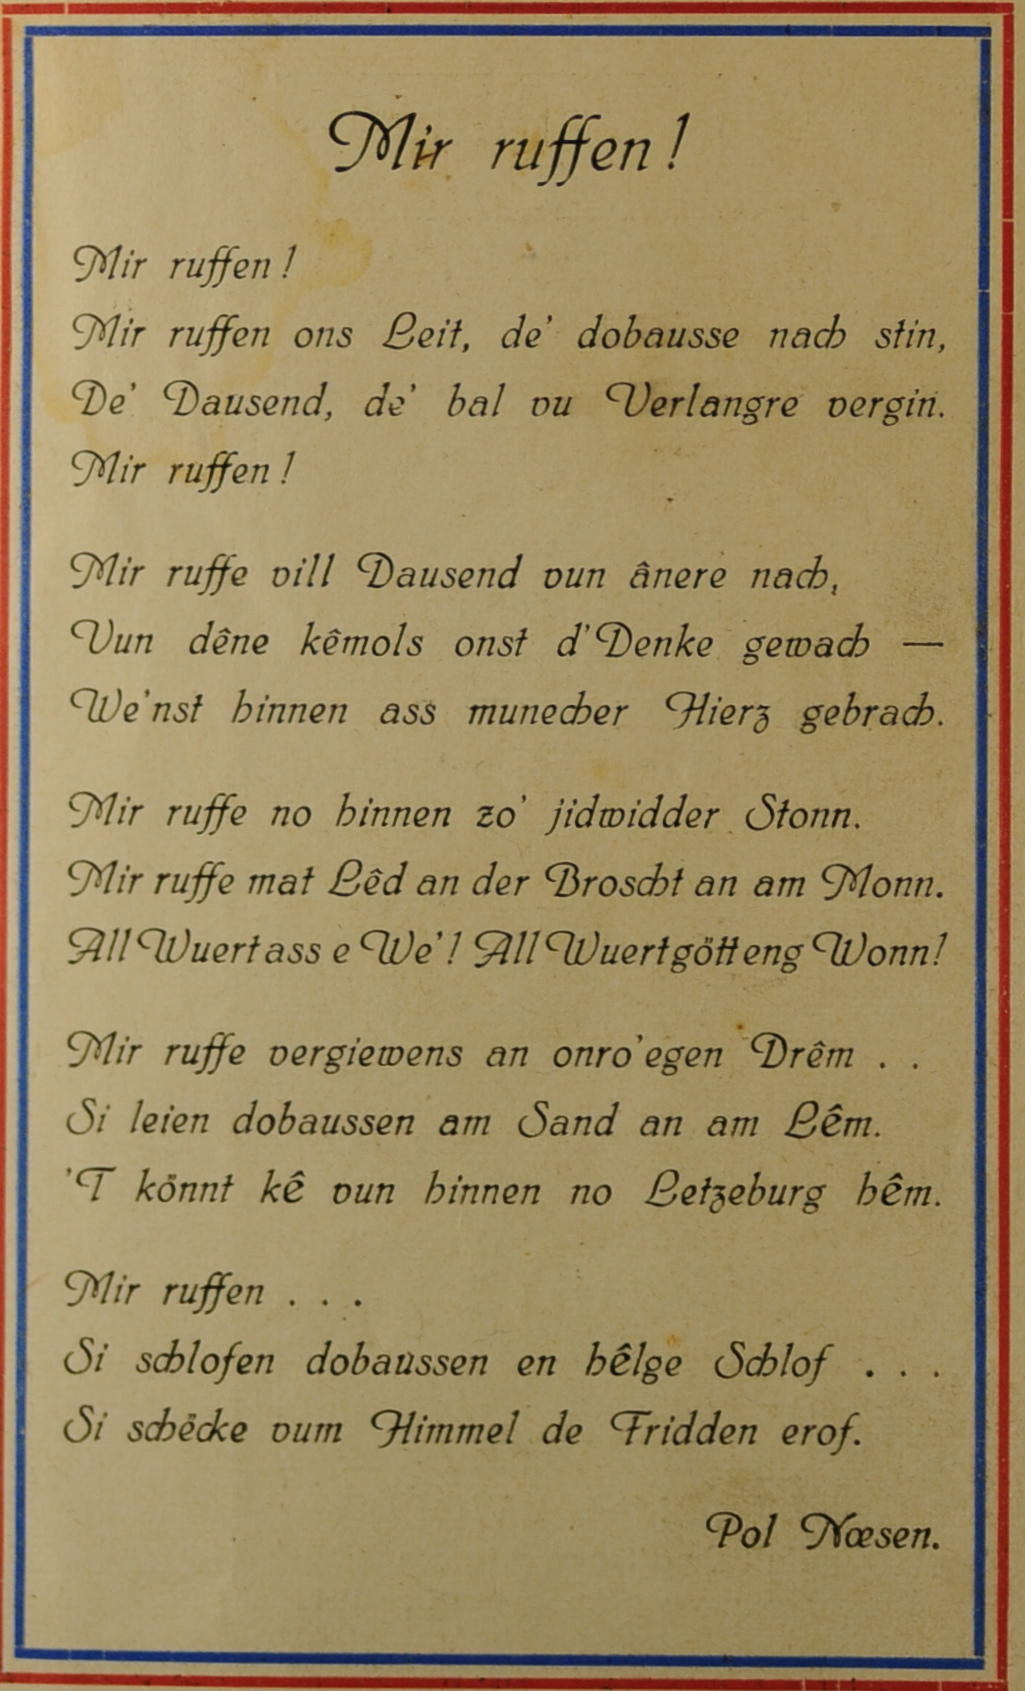 Mir ruffen!
Mir ruffen!
Mir ruffen ons Leit, de' dobausse nach stin,
De' Dausend, de' bal vu Verlangre vergin.
Mir ruffen!
Mir ruffe vill Dausend vun ânere nach,
Vun dêne kêmols onst d'Denke gewach —
We'nst hinnen ass munecher Hierz gebrach.
Mir ruffe no hinnen zo' jidwidder Stonn.
Mir ruffe mat Lêd an der Broscht an am Monn.
All Wuert ass e We'! All Wuert gött eng Wonn!
Mir ruffe vergiewens an onro'egen Drêm . .
Si leien dobaussen am Sand an am Lêm.
'T könnt kê vun hinnen no Letzeburg hêm.
Mir ruffen . . .
Si schlofen dobaussen en hêlge Schlof . . .
Si schécke vum Himmel de Fridden erof.
Pol Nœsen.